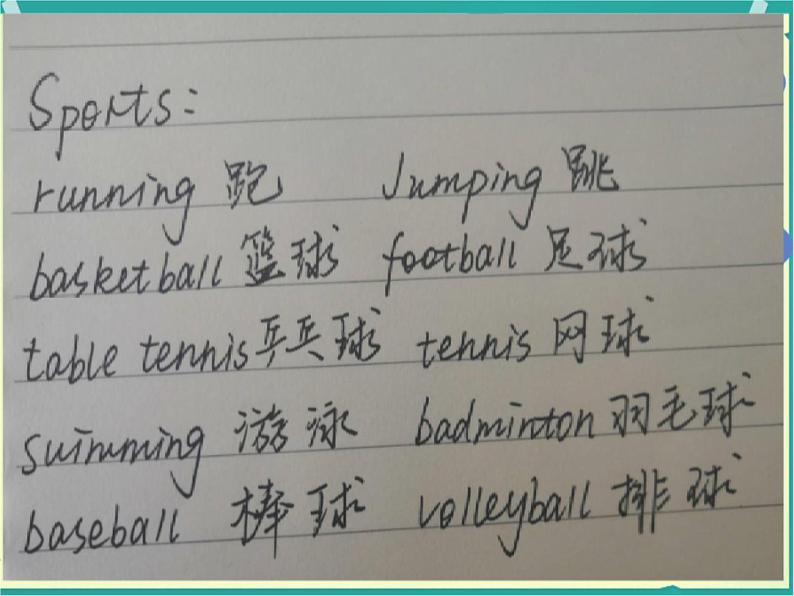 Sports:
running 跑 Jumping 跳
basketball 篮球 football 足球
table tennis 乒乓球 tennis 网球
swimming 游泳 badminton 羽毛球
baseball 棒球 volleyball 排球